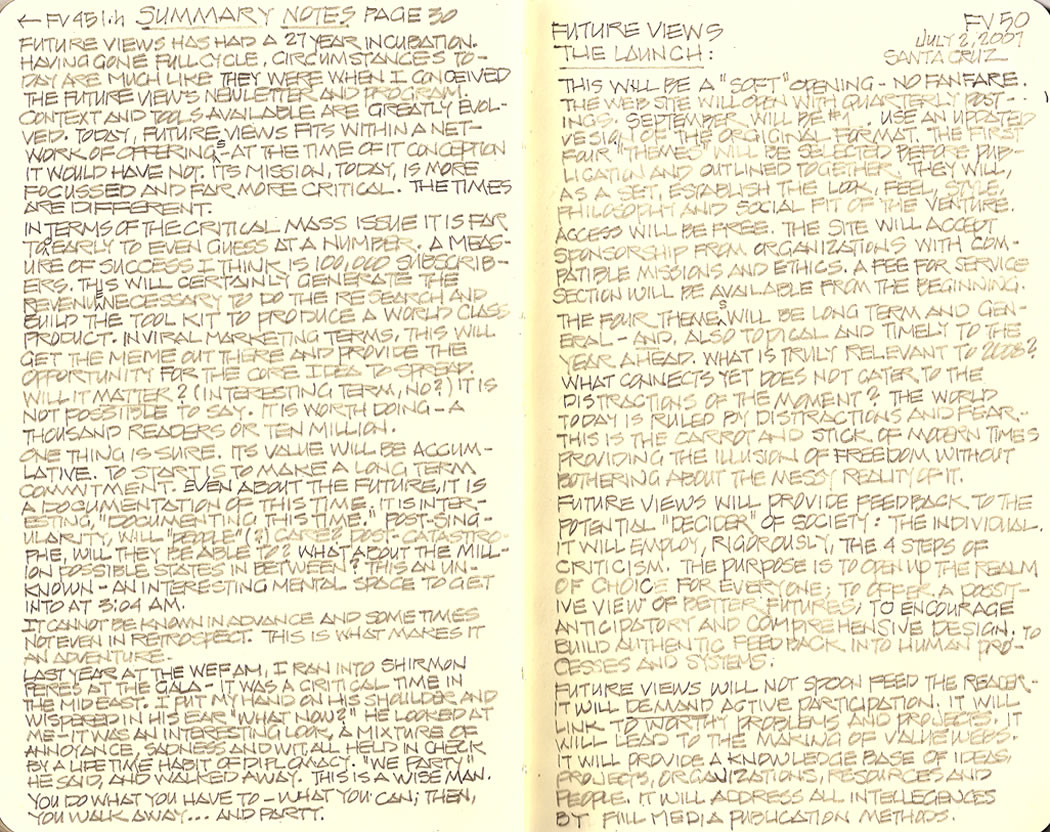 ← FV 45 Lih SUMMARY NOTES PAGE 30
FUTURE VIEWS HAS HAD A 27 YEAR INCUBATION.
HAVING GONE FULL CYCLE, CIRCUMSTANCES TO-
DAY ARE MUCH LIKE THEY WERE WHEN I CONCEIVED
THE FUTURE VIEWS NEWLETTER AND PROGRAM.
CONTEXT AND TOOLS AVAILABLE ARE GREATLY EVOL-
VED. TODAY, FUTURE VIEWS FITS WITHIN A NET-
WORK OF OFFERINGS - AT THE TIME OF IT CONCEPTION
IT WOULD HAVE NOT. ITS MISSION, TODAY, IS MORE
FOCUSSED AND FAR MORE CRITICAL. THE TIMES
ARE DIFFERENT.
IN TERMS OF THE CRITICAL MASS ISSUE IT IS FAR
TO EARLY TO EVEN GUESS AT A NUMBER. A MEAS-
URE OF SUCCESS I THINK IS 100,000 SUBSCRIB-
ERS. THIS WILL CERTAINLY GENERATE THE
REVENUE NECESSARY TO DO THE RESEARCH AND
BUILD THE TOOL KIT TO PRODUCE A WORLD CLASS
PRODUCT. IN VIRAL MARKETING TERMS, THIS WILL
GET THE MEME OUT THERE AND PROVIDE THE
OPPORTUNITY FOR THE CORE IDEA TO SPREAD.
WILL IT MATTER? (INTERESTING TERM, NO?) IT IS
NOT POSSIBLE TO SAY. IT IS WORTH DOING - A
THOUSAND READERS OR TEN MILLION.
ONE THING IS SURE. ITS VALUE WILL BE ACCUM-
LATIVE. TO START IS TO MAKE A LONG TERM
COMMITMENT. EVEN ABOUT THE FUTURE, IT IS
A DOCUMENTATION OF THIS TIME. IT IS INTER-
ESTING, "DOCUMENTING THIS TIME." POST-SING-
ULARITY, WILL "PEOPLE" (?) CARE? POST-CATASTRO-
PHE, WILL THEY BE ABLE TO? WHAT ABOUT THE MILL-
ION POSSIBLE STATES IN BETWEEN? THIS AN UN-
KNOWN - AN INTERESTING MENTAL SPACE TO GET
INTO AT 3:04 AM.
IT CANNOT BE KNOWN IN ADVANCE AND SOME TIMES
NOT EVEN IN RETROSPECT. THIS IS WHAT MAKES IT
AN ADVENTURE.
LAST YEAR AT THE WEF AM, I RAN INTO SHIRMON
PERES AT THE GALA - IT WAS A CRITICAL TIME IN
THE MID EAST. I PUT MY HAND ON HIS SHOULDER AND
WISPERED IN HIS EAR "WHAT NOW?" HE LOOKED AT
ME - IT WAS AN INTERESTING LOOK, A MIXTURE OF
ANNOYANCE, SADNESS AND WIT, ALL HELD IN CHECK
BY A LIFE TIME HABIT OF DIPLOMACY. "WE PARTY"
HE SAID, AND WALKED AWAY. THIS IS A WISE MAN.
YOU DO WHAT YOU HAVE TO - WHAT YOU CAN; THEN,
YOU WALK AWAY... AND PARTY.
FV 50
FUTURE VIEWS JULY 2, 2007
THE LAUNCH: SANTA CRUZ
THIS WILL BE A "SOFT" OPENING - NO FANFARE.
THE WEB SITE WILL OPEN WITH QUARTERLY POST-
INGS. SEPTEMBER WILL BE #1. USE AN UPDATED
VESIGN OF THE ORGIGINAL FORMAT. THE FIRST
FOUR "THEMES" WILL BE SELECTED BEFORE PUB-
LICATION AND OUTLINED TOGETHER. THEY WILL,
AS A SET, ESTABLISH THE LOOK, FEEL, STYLE,
PHILOSOPHY AND SOCIAL FIT OF THE VENTURE.
ACCESS WILL BE FREE. THE SITE WILL ACCEPT
SPONSORSHIP FROM ORGANIZATIONS WITH COM-
PATIBLE MISSIONS AND ETHICS. A FEE FOR SERVICE
SECTION WILL BE AVAILABLE FROM THE BEGINNING.
THE FOUR THEMES WILL BE LONG TERM AND GEN-
ERAL - AND, ALSO TOPICAL AND TIMELY TO THE
YEAR AHEAD. WHAT IS TRULY RELEVANT TO 2008?
WHAT CONNECTS YET DOES NOT CATER TO THE
DISTRACTIONS OF THE MOMENT? THE WORLD
TODAY IS RULED BY DISTRACTIONS AND FEAR.
THIS IS THE CARROT AND STICK OF MODERN TIMES
PROVIDING THE ILLUSION OF FREEDOM WITHOUT
BOTHERING ABOUT THE MESSY REALITY OF IT.
FUTURE VIEWS WILL PROVIDE FEEDBACK TO THE
POTENTIAL "DECIDER" OF SOCIETY: THE INDIVIDUAL.
IT WILL EMPLOY, RIGOROUSLY, THE 4 STEPS OF
CRITICISM. THE PURPOSE IS TO OPEN UP THE REALM
OF CHOICE FOR EVERYONE; TO OFFER A POSSIT-
IVE VIEW OF BETTER FUTURES; TO ENCOURAGE
ANTICIPATORY AND COMPREHENSIVE DESIGN. TO
BUILD AUTHENTIC FEEDBACK INTO HUMAN PRO-
CESSES AND SYSTEMS.
FUTURE VIEWS WILL NOT SPOON FEED THE READER-
IT WILL DEMAND ACTIVE PARTICIPATION. IT WILL
LINK TO WORTHY PROBLEMS AND PROJECTS. IT
WILL LEAD TO THE MAKING OF VALUE WEBS.
IT WILL PROVIDE A KNOWLEDGE BASE OF IDEAS,
PROJECTS, ORGANIZATIONS, RESOURCES AND
PEOPLE. IT WILL ADDRESS ALL INTELLEGENCES
BY FULL MEDIA PUBLICATION METHODS.